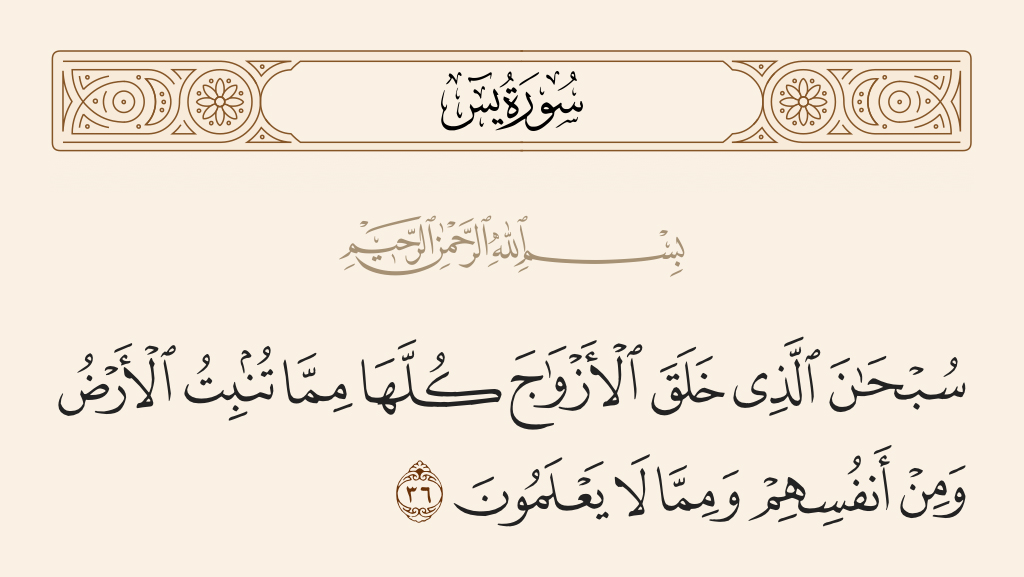 سُورَةُ يسٓ
بِسْمِ ٱللَّهِ ٱلرَّحْمَٰنِ ٱلرَّحِيمِ
سُبْحَٰنَ ٱلَّذِى خَلَقَ ٱلْأَزْوَٰجَ كُلَّهَا مِمَّا تُنۢبِتُ ٱلْأَرْضُ
وَمِنْ أَنفُسِهِمْ وَمِمَّا لَا يَعْلَمُونَ ٣٦